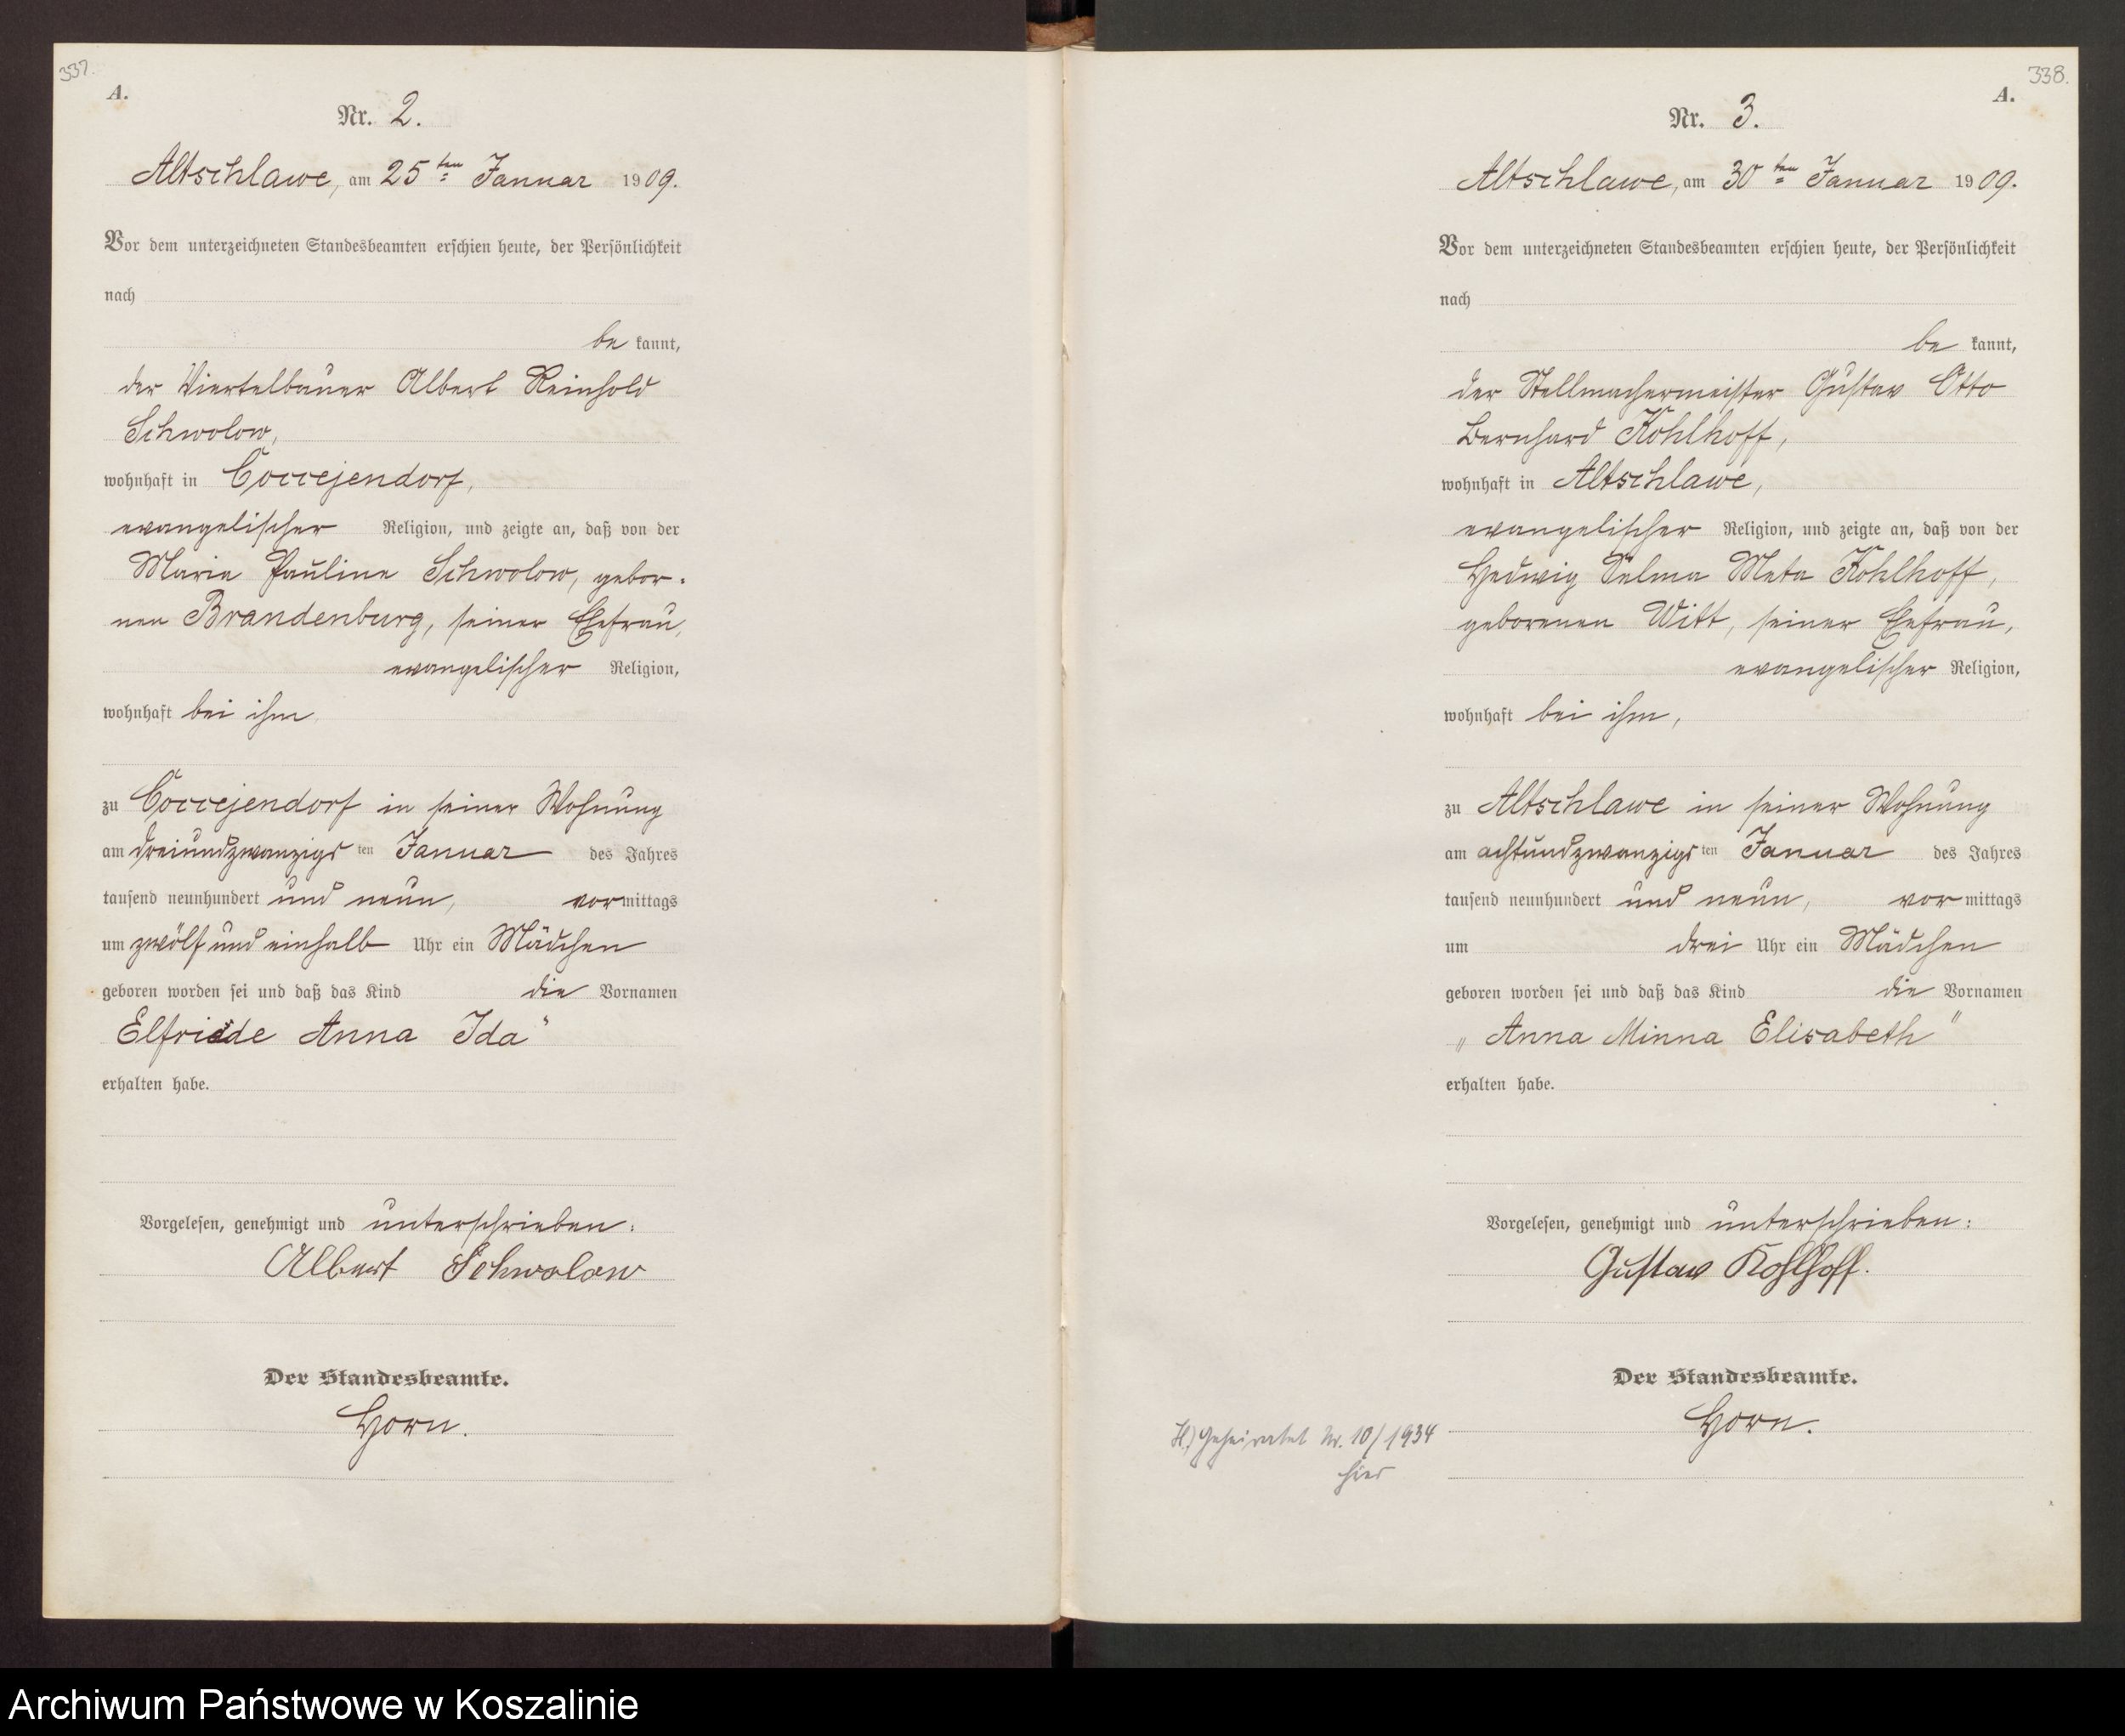 337.
A.
Nr. 2.
Altschlawe, am 25ten Januar 1909.
Vor dem unterzeichneten Standesbeamten erschien heute, der Persönlichkeit
nach
be kannt,
der Viertelbauer Albert Reinhold
Schwolow,
wohnhaft in Coccejendorf,
evangelischer Religion, und zeigte an, daß von der
Maria Pauline Schwolow, gebor-
nen Brandenburg, seiner Ehefrau,
evangelischer Religion,
wohnhaft bei ihm
zu Coccejendorf in seiner Wohnung
am dreiundzwanzigsten Januar des Jahres
tausend neunhundert und neun, vormittags
um zwölf und einhalb Uhr ein Mädchen
geboren worden sei und daß das Kind die Vornamen
Elfriede Anna Ida"
erhalten habe.
Vorgelesen, genehmigt und unterschrieben:
Albert Schwolow
Der Standesbeamte.
Horn.
338.
A.
Nr. 3.
Altschlawe, am 30ten Januar 1909.
Vor dem unterzeichneten Standesbeamten erschien heute, der Persönlichkeit
nach
be kannt,
der Stellmachermeister Gustav Otto
Bernhard Kohlhoff,
wohnhaft in Altschlawe,
evangelischer Religion, und zeigte an, daß von der
Hedwig Selma Meta Kohlhoff,
geborenen Witt, seiner Ehefrau,
evangelischer Religion,
wohnhaft bei ihm,
zu Altschlawe in seiner Wohnung
am achtundzwanzigsten Januar des Jahres
tausend neunhundert und neun, vormittags
um drei Uhr ein Mädchen
geboren worden sei und daß das Kind die Vornamen
„Anna Minna Elisabeth"
erhalten habe.
Vorgelesen, genehmigt und unterschrieben:
Gustav Kohlhoff.
Der Standesbeamte.
Horn.
H) Geheiratet Nr. 10/1934
hier
Archiwum Państwowe w Koszalinie